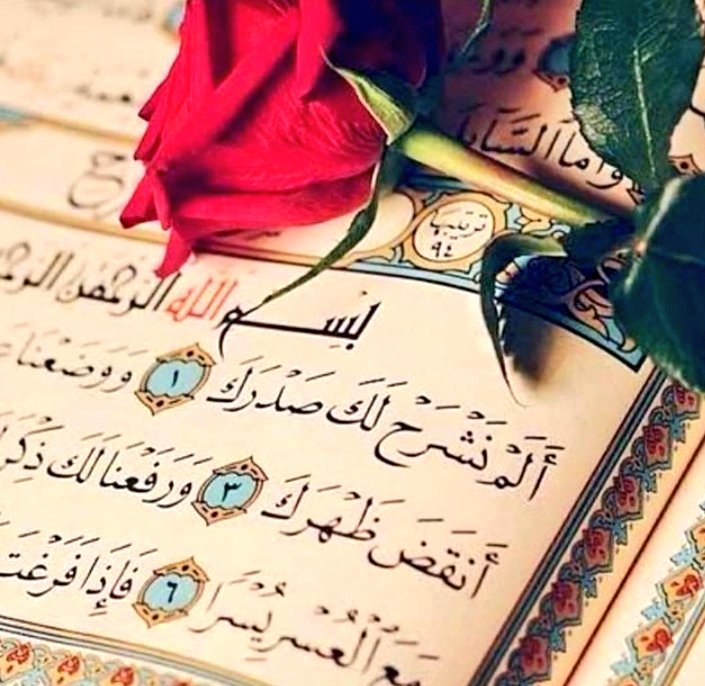 وأما السائل
ترتيبها
٩٤
بسم الله الرحمن الرح
أَلَمْ نَشْرَحْ لَكَ صَدْرَكَ ١ وَوَضَعْنَا
أَنقَضَ ظَهْرَكَ ٣ وَرَفَعْنَا لَكَ ذِكْرَ
مَعَ ٱلْعُسْرِ يُسْرًا ٦ فَإِذَا فَرَغْتَ